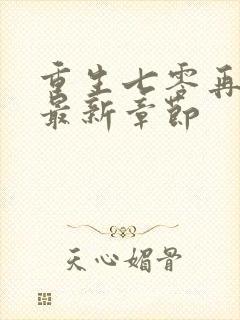 重生七零再
最新章节
天心媚骨